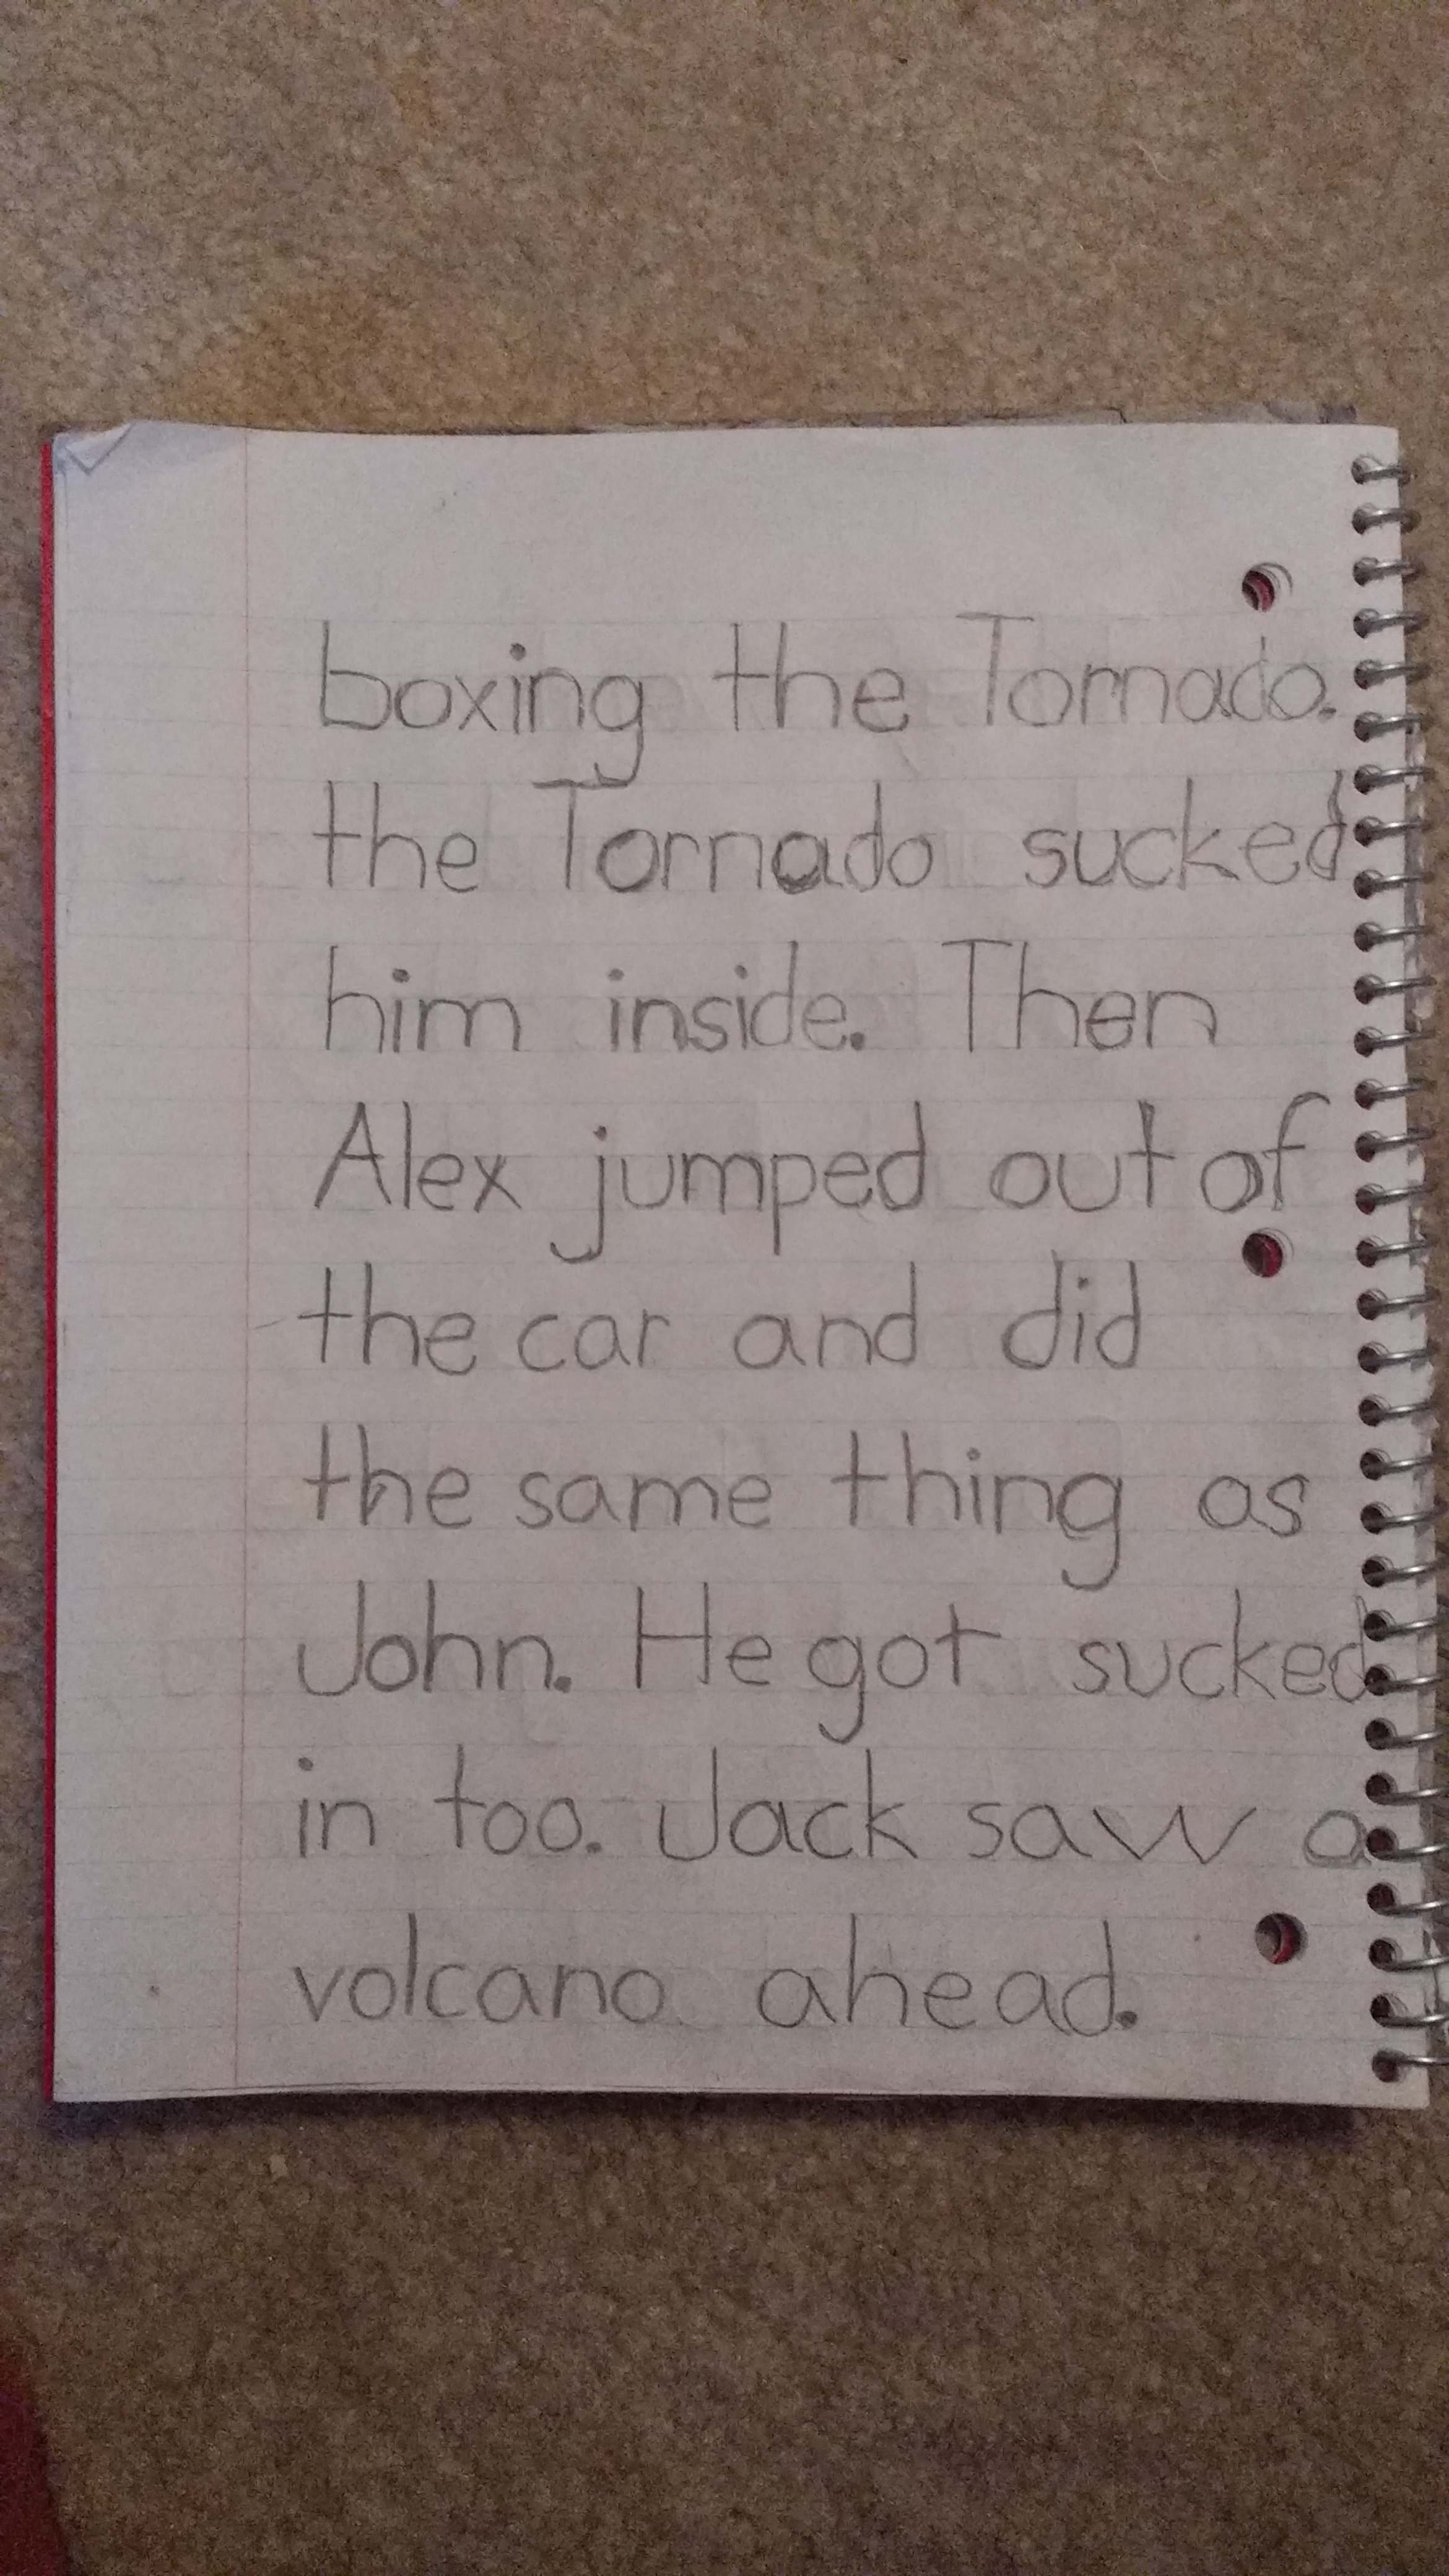 boxing the Tornado.
the Tornado sucked
him inside. Then
Alex jumped out of
the car and did
the same thing as
John. He got sucked
in too. Jack saw a
volcano ahead.